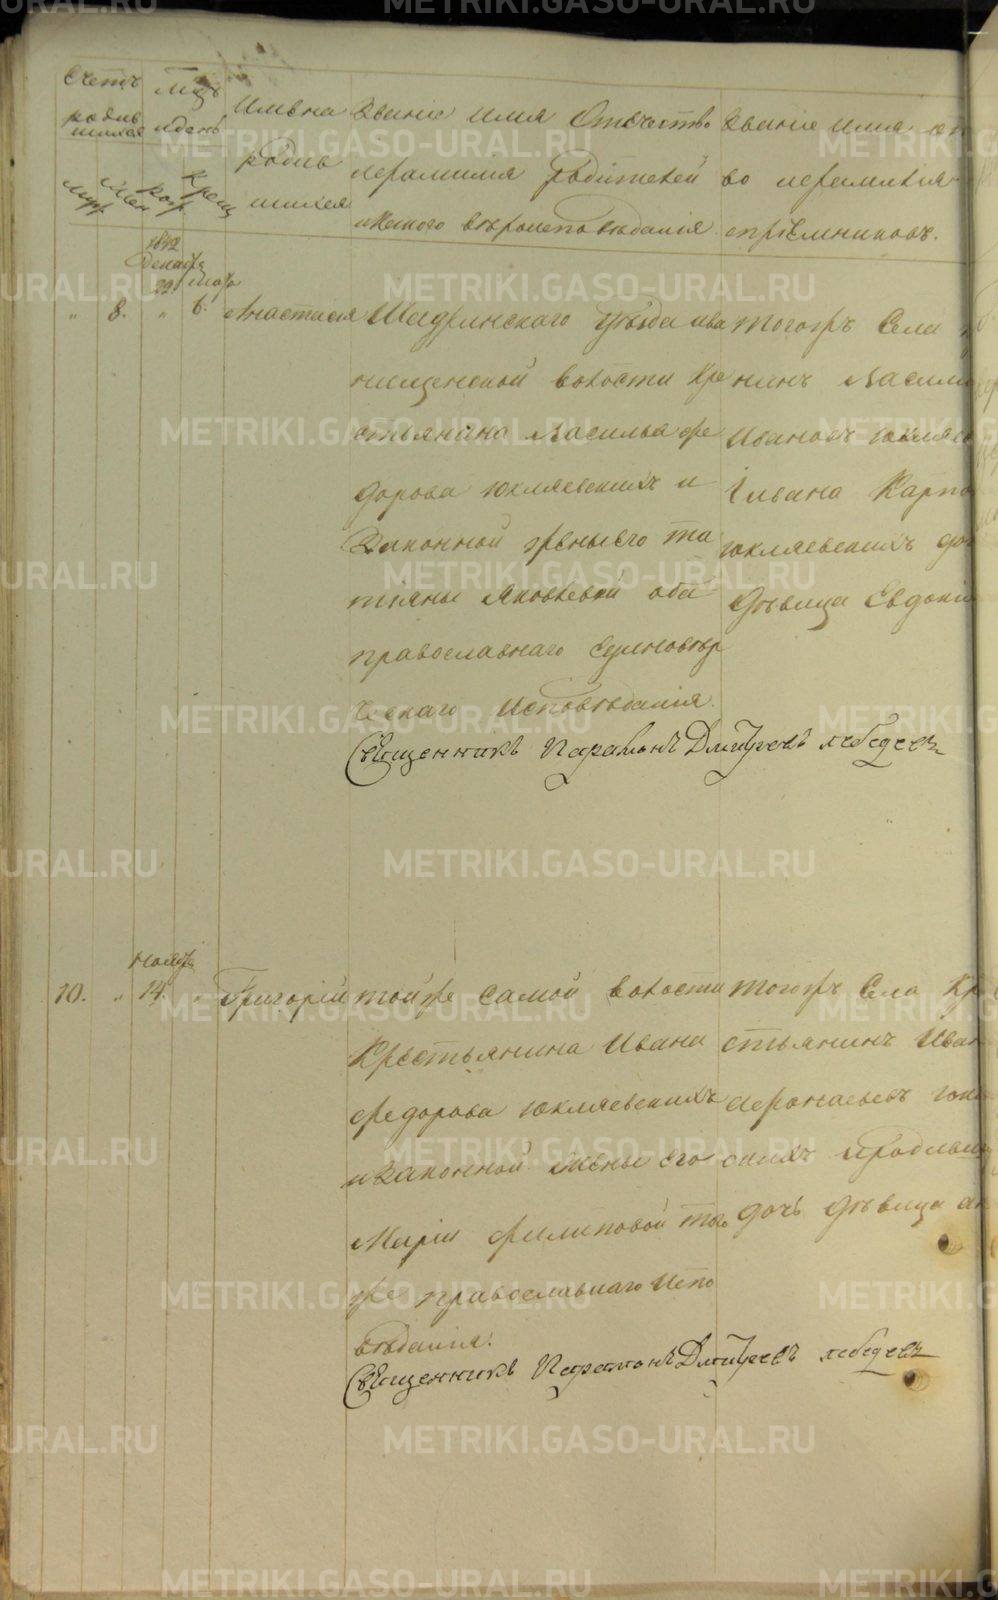 METRIKI.GASO-URAL.RU
Счетъ
родив
шихся
Мцъ
и день
Имена
родив
шихся
Званіе имя Отчество
и фамилія Родителей
и какого вѣроисповѣданія
Званіе имя от
во и фамилія
пріемниковъ.
муж
жен
кото
крещ
1842
Декабр
22
Мар
" 8. " 6.
Анастасія
Шадринскаго Уѣзда ива
нищенской волости кре
стьянина Василья Фе
дорова Юкляевскихъ и
Законной жены его та
тіяны Яковлевой оба
православнаго единовѣр
ческаго Исповѣданія.
тогожъ Села
нинъ Васили
Ивановъ Юкляев
Ивана Карпо
Юкляевскихъ доч
дѣвица Евдокія
Священникъ Парамонъ Дмитреевъ Лебедевъ
Ноября
10. " 14. "
Григорій
тойже самой волости
Крестьянина Ивана
Федорова Юкляевскихъ
и Законной Жены его
Маріи Филиповой то
же православнаго Испо
вѣданія.
тогожъ Села Кр
стьянинъ Иван
Афонасьевъ Юкл
дочь дѣвица ан
Священникъ Парамонъ Дмитреевъ Лебедевъ